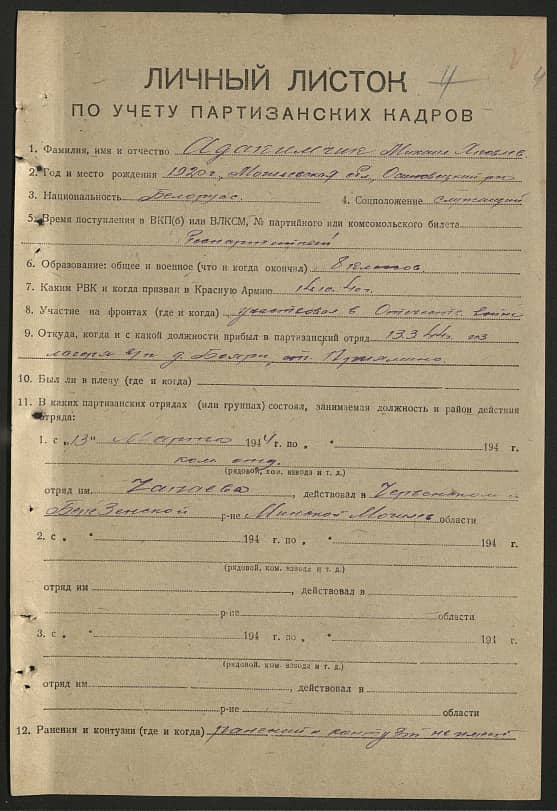 4
ЛИЧНЫЙ ЛИСТОК 4
ПО УЧЕТУ ПАРТИЗАНСКИХ КАДРОВ
1. Фамилия, имя и отчество Адакимчик Михаил Яковлев.
2. Год и место рождения 1920 г, Могилевская обл, Осиповецкий р-н
3. Национальность Белорус. 4. Соцположение служащий
5. Время поступления в ВКП(б) или ВЛКСМ, № партийного или комсомольского билета
Беспартийный
6. Образование: общее и военное (что и когда окончил) 8 классов.
7. Каким РВК и когда призван в Красную Армию 40 г.
8. Участие на фронтах (где и когда) участвовал в Отечеств. войне
9. Откуда, когда и с какой должности прибыл в партизанский отряд 13.3.44г. из
лагеря в/п д. Бояри, ст.
10. Был ли в плену (где и когда)
11. В каких партизанских отрядах (или группах) состоял, занимаемая должность и район действия
отряда:
1. с „13" Марта 1944 г. по „ " 194 г.
ком отд.
(рядовой, ком. взвода и т. д.)
отряд им. Чапаева, действовал в Червенском и
Березенской р-не Минской Могилев области
2. с „ " 194 г. по „ " 194 г.
(рядовой, ком. взвода и т. д.)
отряд им , действовал в
р-не области
3. с „ " 194 г. по „ " 194 г.
(рядовой, ком. взвода и т. д.)
отряд им , действовал в
р-не области
12. Ранения и контузии (где и когда) ранений и контузий не имел